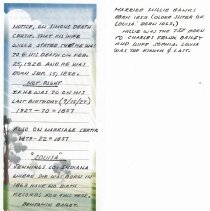 NOTICE, ON SIMONS DEATH
CERTIF. THAT HIS WIFE
LOUISA STATED THAT HE WAS
70 @ HIS DEATH ON FEB.
25, 1928 AND HE WAS
BORN SEP. 15, 1858.
NOT RIGHT
HE WAS 70 ON HIS
LAST BIRTHDAY (9/15/27)
1927-70 = 1857
ALSO ON MARRIAGE CERTIF.
1879-22 = 1857
"LOUISA"
JENNINGS CO. INDIANA
WHERE SHE WAS BORN IN
1863 HAVE NO BIRTH
RECORDS FOR THIS YEAR.
BENJAMIN BAILEY.
MARRIED MILLIE BANKS
BORN 1853 (OLDER SISTER OF
LOUISA BORN 1863.)
MILLIE WAS THE 1ST BORN
TO CHARLES BAILEY
AND WIFE SOPHIA. LOUISA
WAS THE YOUNGEST & LAST.